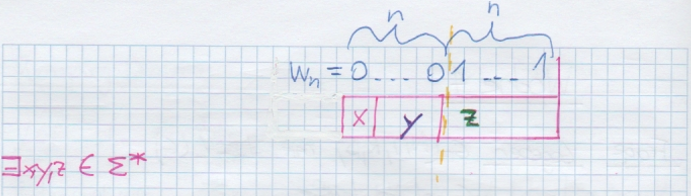 n n
Wn = 0 ... 0 1 ... 1
x y z
∃x,y,z ∈ Σ*